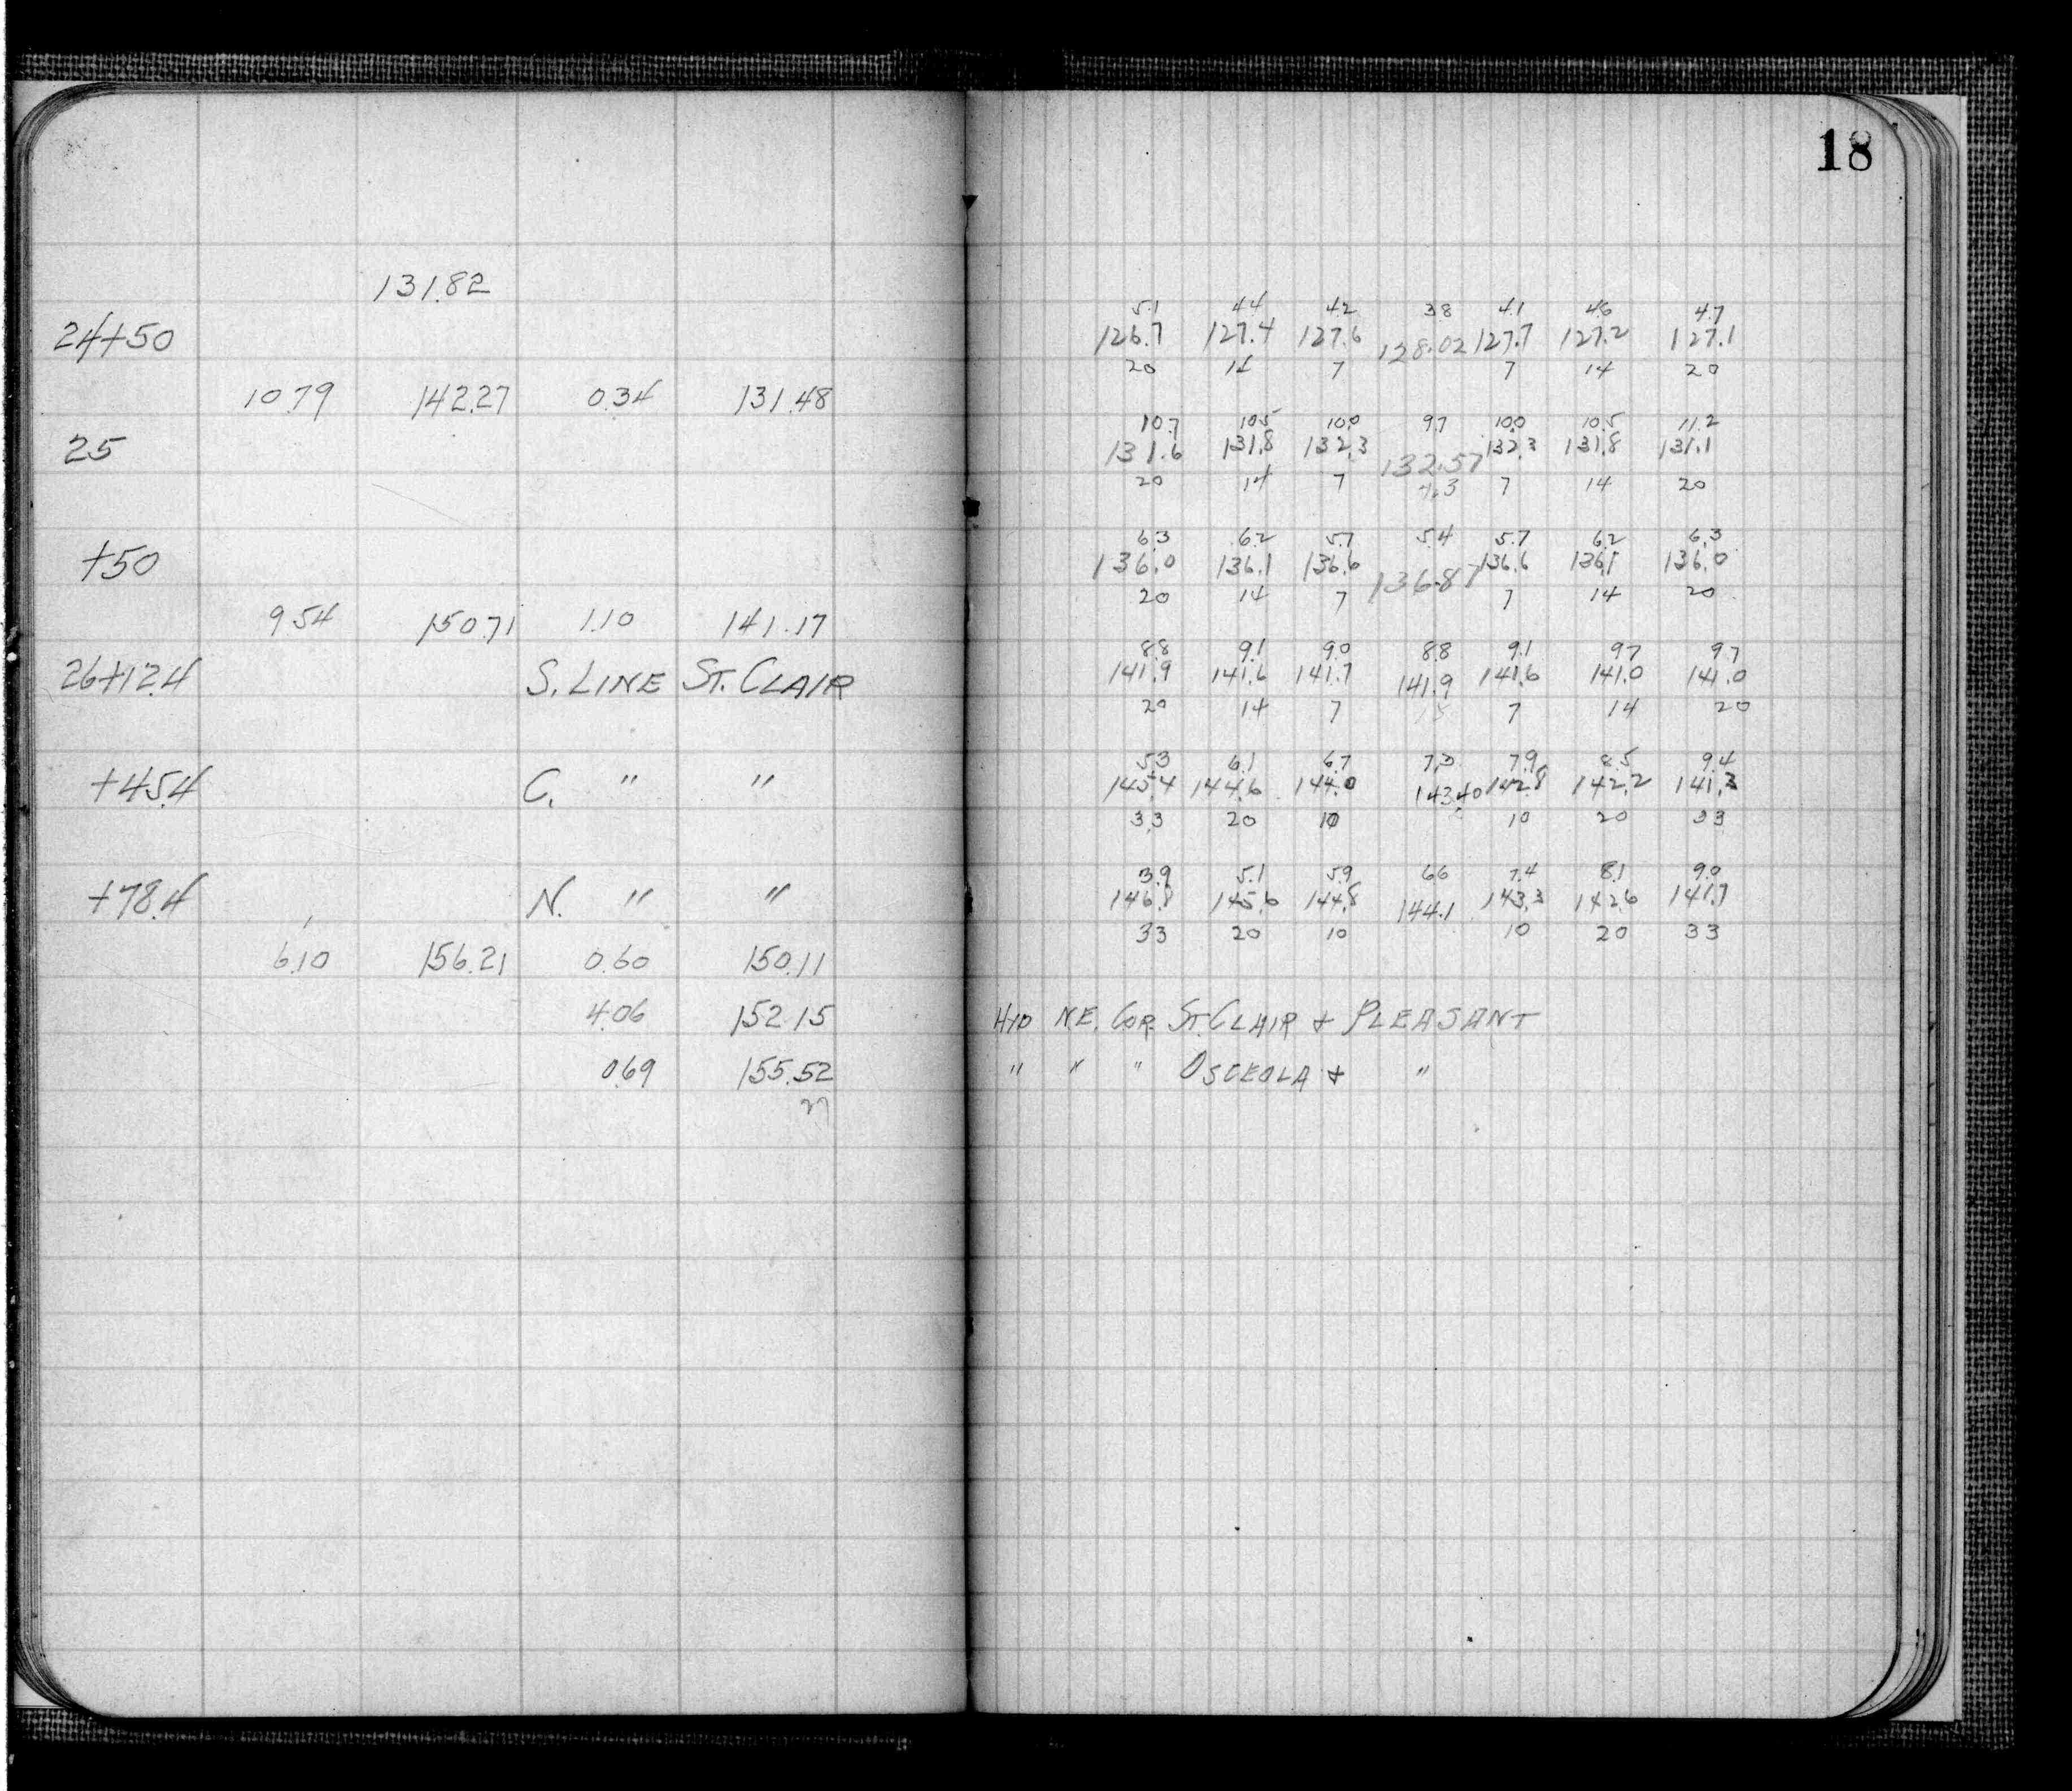 18
131.82
5.1 4.4 4.2 3.8 4.1 4.6 4.7
24+50 126.7 127.4 127.6 128.02 127.7 127.2 127.1
20 14 7 7 14 20
10.79 142.27 0.34 131.48
10.7 10.5 10.0 9.7 10.0 10.5 11.2
25 131.6 131.8 132.3 132.57 132.3 131.8 131.1
20 14 7 7 14 20
6.3 6.2 5.7 5.4 5.7 6.2 6.3
+50 136.0 136.1 136.6 136.87 136.6 136.1 136.0
20 14 7 7 14 20
9.54 150.71 1.10 141.17
8.8 9.1 9.0 8.8 9.1 9.7 9.7
26+12.4 S. LINE ST. CLAIR 141.9 141.6 141.7 141.9 141.6 141.0 141.0
20 14 7 7 14 20
5.3 6.1 6.7 7.3 7.9 8.5 9.4
+45.4 C. " " 145.4 144.6 144.0 143.40 142.8 142.2 141.3
33 20 10 10 20 33
3.9 5.1 5.9 6.6 7.4 8.1 9.0
+78.4 N. " " 146.8 145.6 144.8 144.1 143.3 142.6 141.7
33 20 10 10 20 33
6.10 156.21 0.60 150.11
4.06 152.15 HYD N.E. COR. ST. CLAIR & PLEASANT
0.69 155.52 " " " OSCEOLA & "